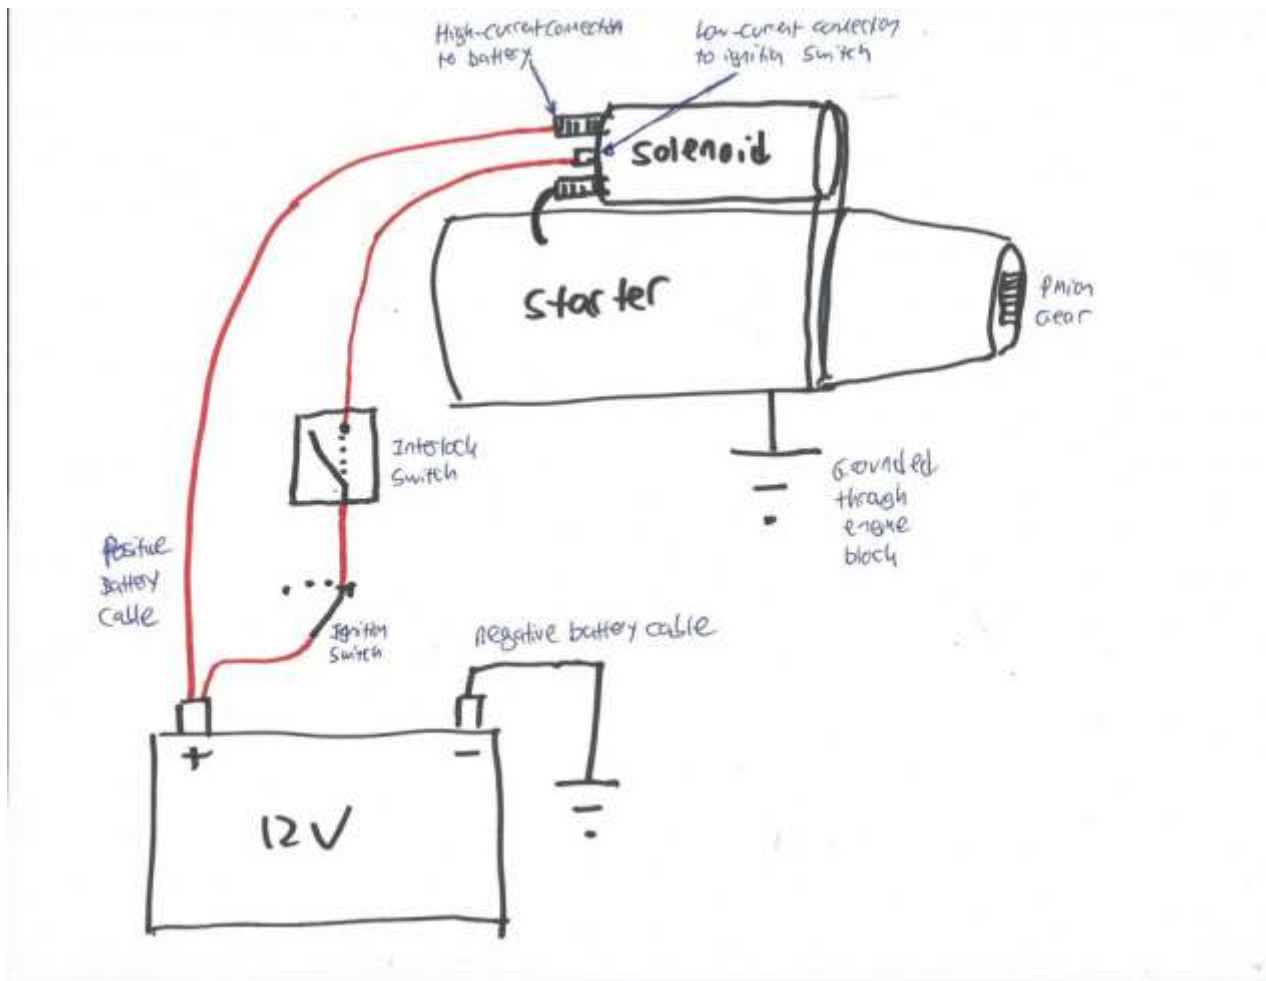 High-current connection
to battery
Low-current connection
to ignition switch
Solenoid
Starter
Pinion
Gear
Interlock
Switch
Grounded
through
engine
block
Positive
Battery
Cable
Ignition
Switch
negative battery cable
+
−
12V